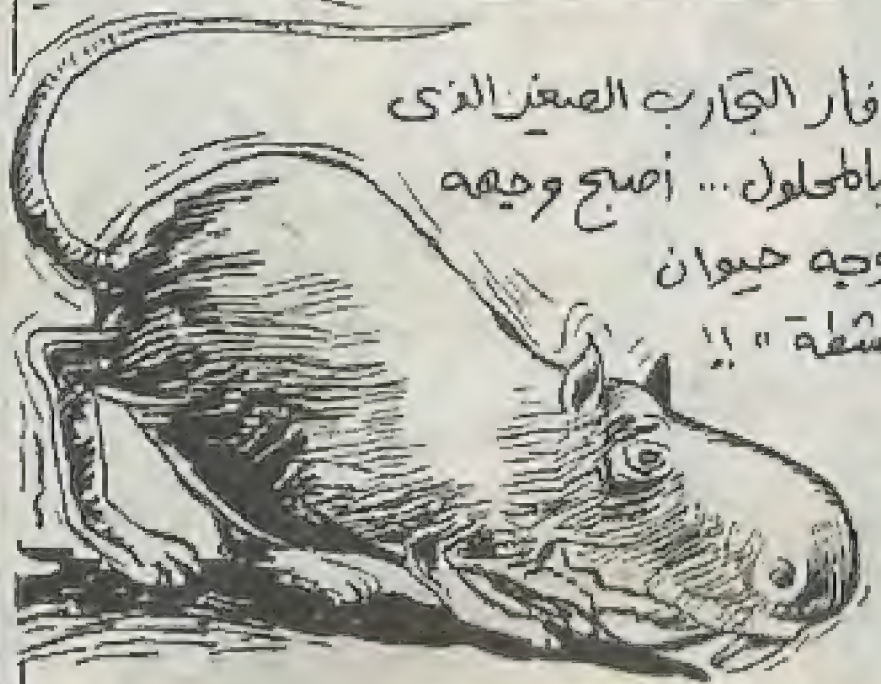 فأر التجارب الصغير الذى
بالمحلول ... أصبح وجهه
وجه حيوان
!!